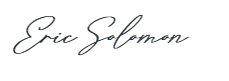 Eric Solomon